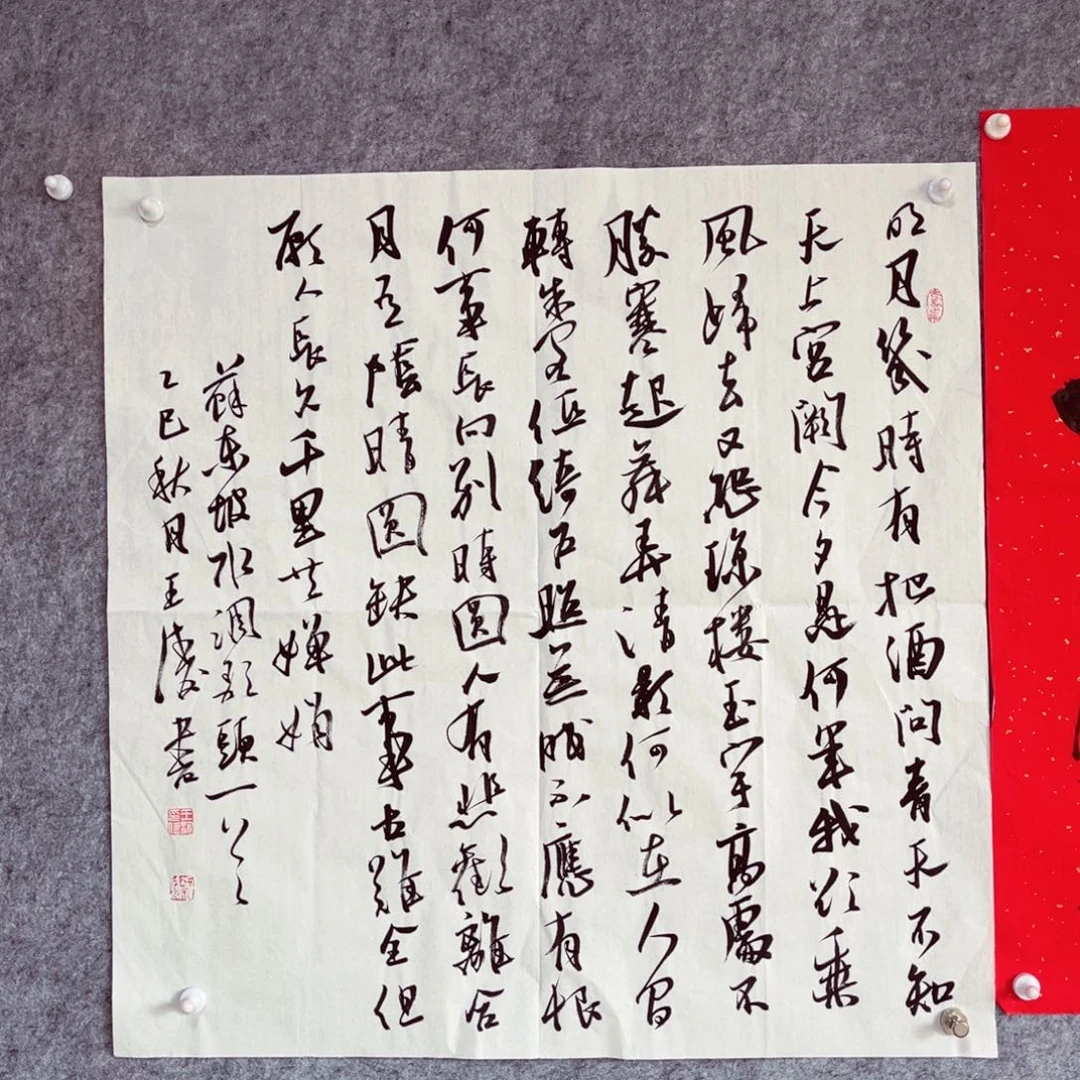 明月幾時有把酒问青天不知
天上宫阙今夕是何年我欲乘
風歸去又恐琼楼玉宇高處不
勝寒起舞弄清影何似在人间
轉朱阁低绮户照無眠不應有恨
何事長向别時圆人有悲歡離合
月有陰晴圆缺此事古難全但
願人長久千里共嬋娟
蘇東坡水調歌頭一
乙巳秋月王書